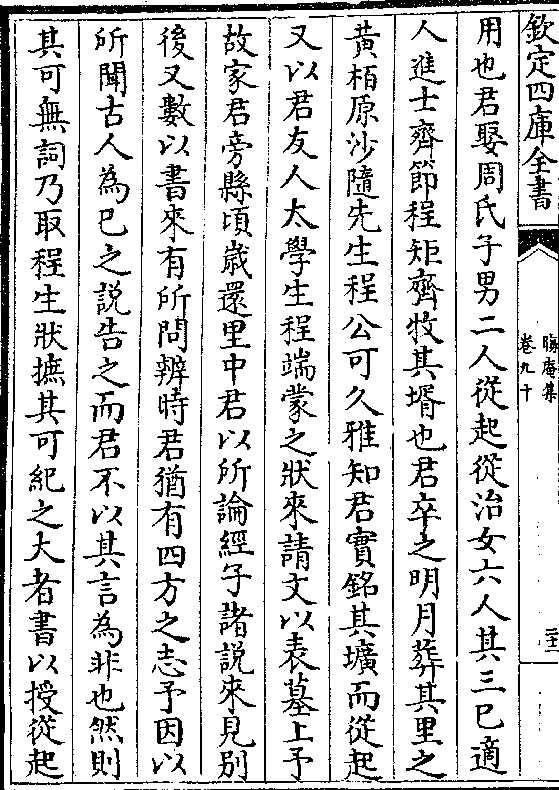 欽定四庫全書
晦庵集
卷九十
用也君娶周氏子男二人從起從治女六人其三已適
人進士齊節程矩齊牧其壻也君卒之明月葬其里之
黃栢原沙隨先生程公可久雅知君實銘其壙而從起
又以君友人太學生程端蒙之狀來請文以表墓上予
故家君旁縣頃歲還里中君以所論經子諸說來見別
後又數以書來有所問辨時君猶有四方之志予因以
所聞古人為已之説告之而君不以其言為非也然則
其可無詞乃取程生狀摭其可紀之大者書以授從起